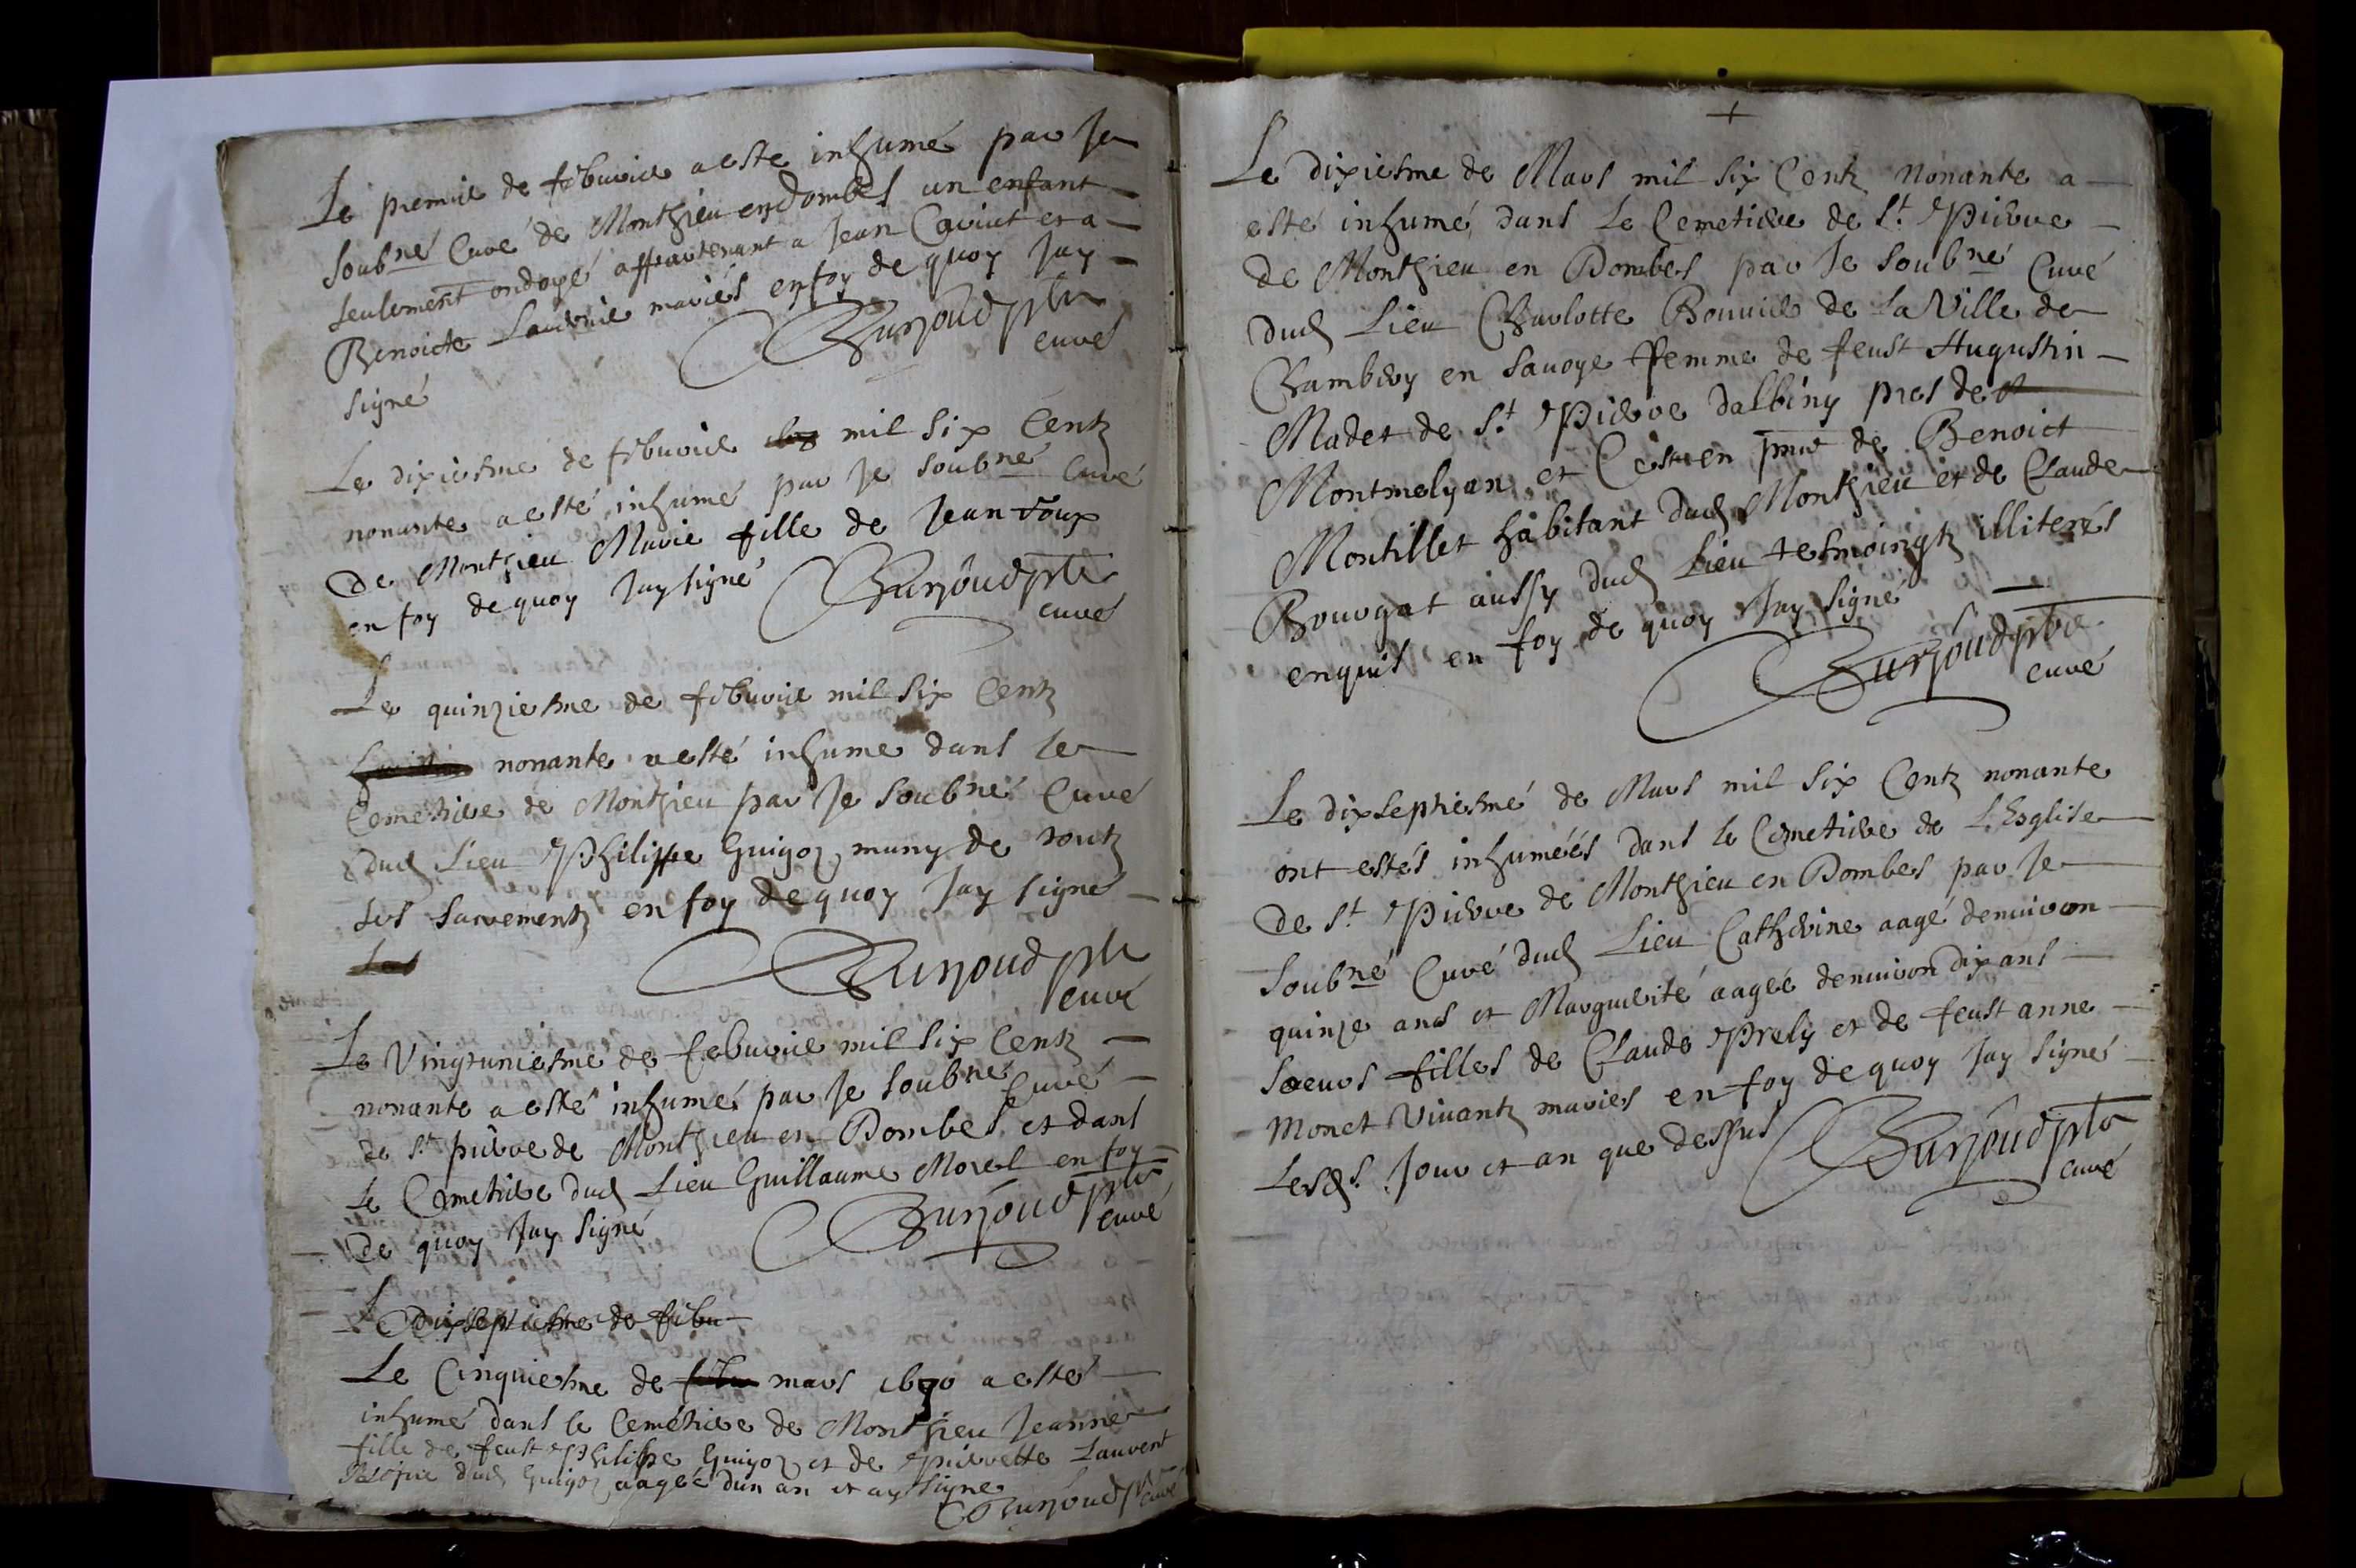 Le premier de febvrier a esté inhumé par Je
soubné Curé de Monthieu en Dombes un enfant
seulement ondoyé appartenant a Jean et a
Benoicte mariés en foy de quoy Jay
signé
ptre
curé
Le dixiesme de febvrier mil six Centz
nonante a esté inhumé par Je soubné Curé
De Monthieu Marie fille de Jean roux
en foy de quoy Jay signé
ptre
curé
Le quinziesme de febvrier mil six Centz
nonante a esté inhumé dans le
Cemetiere de Monthieu par Je soubné Curé
dud Lieu Philippe Guigoz muny de toutz
les sacrementz en foy de quoy Jay signé
ptre
curé
Le Vingtuniesme de febvrier mil six Centz
nonante a esté inhumé par Je soubné Curé
de St pierre de Monthieu en Dombes et dans
le Cemetiere dud Lieu Guillaume Morel en foy
De quoy Jay signé
ptre
curé
Le Dixseptiesme de febv
Le Cinquiesme de febv mars 1690 a esté
inhumé dans le Cemetiere de Monthieu Jeanne
fille de feust Philippe Guigoz et de pierrette Laurent
dud Guigoz aagéé dun an et ay signé
ptre
curé
+
Le Dixiesme de Mars mil six Centz Nonante a
esté inhumé dans Le Cemetiere de St Pierre
De Monthieu en Dombes par Je soubné Curé
dud Lieu Charlotte Bouvier de La Ville de
Chambery en Savoye ffemme de feust Augustin
Madet de St Pierre Dalbiny pres de
Montmelyan et Ce en pnce de Benoict
Montillet habitant dud Monthieu et de Claude
Bourgat aussy dud Lieu tesmoingtz illiterés
enquis en foy de quoy Jay signé
ptre
curé
Le dixseptiesme de Mars mil six Centz nonante
ont estés inhuméés dans le Cemetiere de L'Esglise
De St Pierre de Monthieu en Dombes par Je
soubné Curé dud Lieu Catherine aagé denuiron
quinze ans et Marguerite aagéé denuiron dix ans
soeurs filles de Claude Prely et de feust anne
Monet Vivantz mariés en foy de quoy Jay signé
Lesds. Jour et an que dessus
ptre
curé